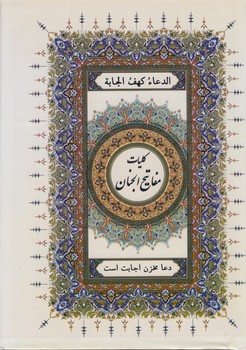 الدعاء كهف الجابة
کلیات
مفاتیح الجنان
دعا مخزن اجابت است